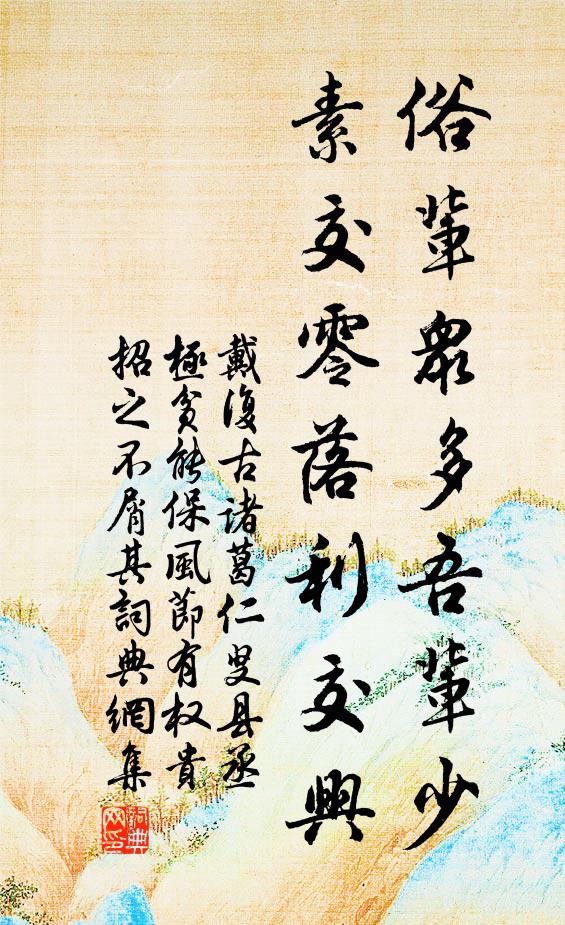 俗輩衆多吾輩少
素交零落利交興
戴復古諸葛仁叟县丞
極貧能保風節有权貴
招之不屑其詞典網集
詞典网印